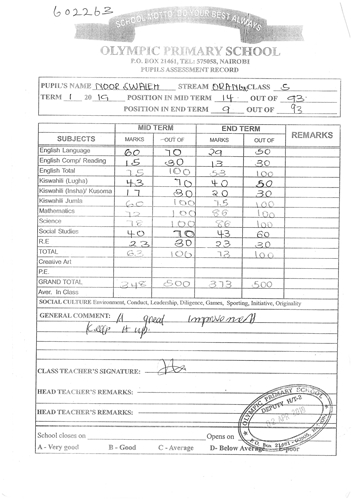 602263
SCHOOL MOTTO: DO YOUR BEST ALWAYS
OLYMPIC PRIMARY SCHOOL
P.O. BOX 21461, TEL: 575058, NAIROBI
PUPILS ASSESSMENT RECORD
PUPIL'S NAME NOOR SWALEH STREAM CLASS 5
TERM 1 20 19 POSITION IN MID TERM 14 OUT OF 93
POSITION IN END TERM 9 OUT OF 93
MID TERM END TERM REMARKS
SUBJECTS MARKS OUT OF MARKS OUT OF
English Language 60 70 29 50
English Comp/ Reading 15 30 13 30
English Total 75 100 53 100
Kiswahili (Lugha) 43 70 40 50
Kiswahili (Insha)/ Kusoma 17 30 20 30
Kiswahili Jumla 60 100 75 100
Mathematics 72 100 86 100
Science 78 100 86 100
Social Studies 40 70 43 60
R.E 23 30 23 30
TOTAL 63 100 73 100
Creative Art
P.E.
GRAND TOTAL 348 500 373 500
Aver. In Class
SOCIAL CULTURE Environment, Conduct, Leadership, Diligence, Games, Sporting, Initiative, Originality
GENERAL COMMENT: A great improvement
Keep it up.
CLASS TEACHER'S SIGNATURE:
HEAD TEACHER'S REMARKS:
HEAD TEACHER'S REMARKS:
OLYMPIC PRIMARY SCHOOL
DEPUTY H/T-2
APR 2019
P.O. Box 21461
School closes on Opens on
A - Very good B - Good C - Average D- Below Average E-poor